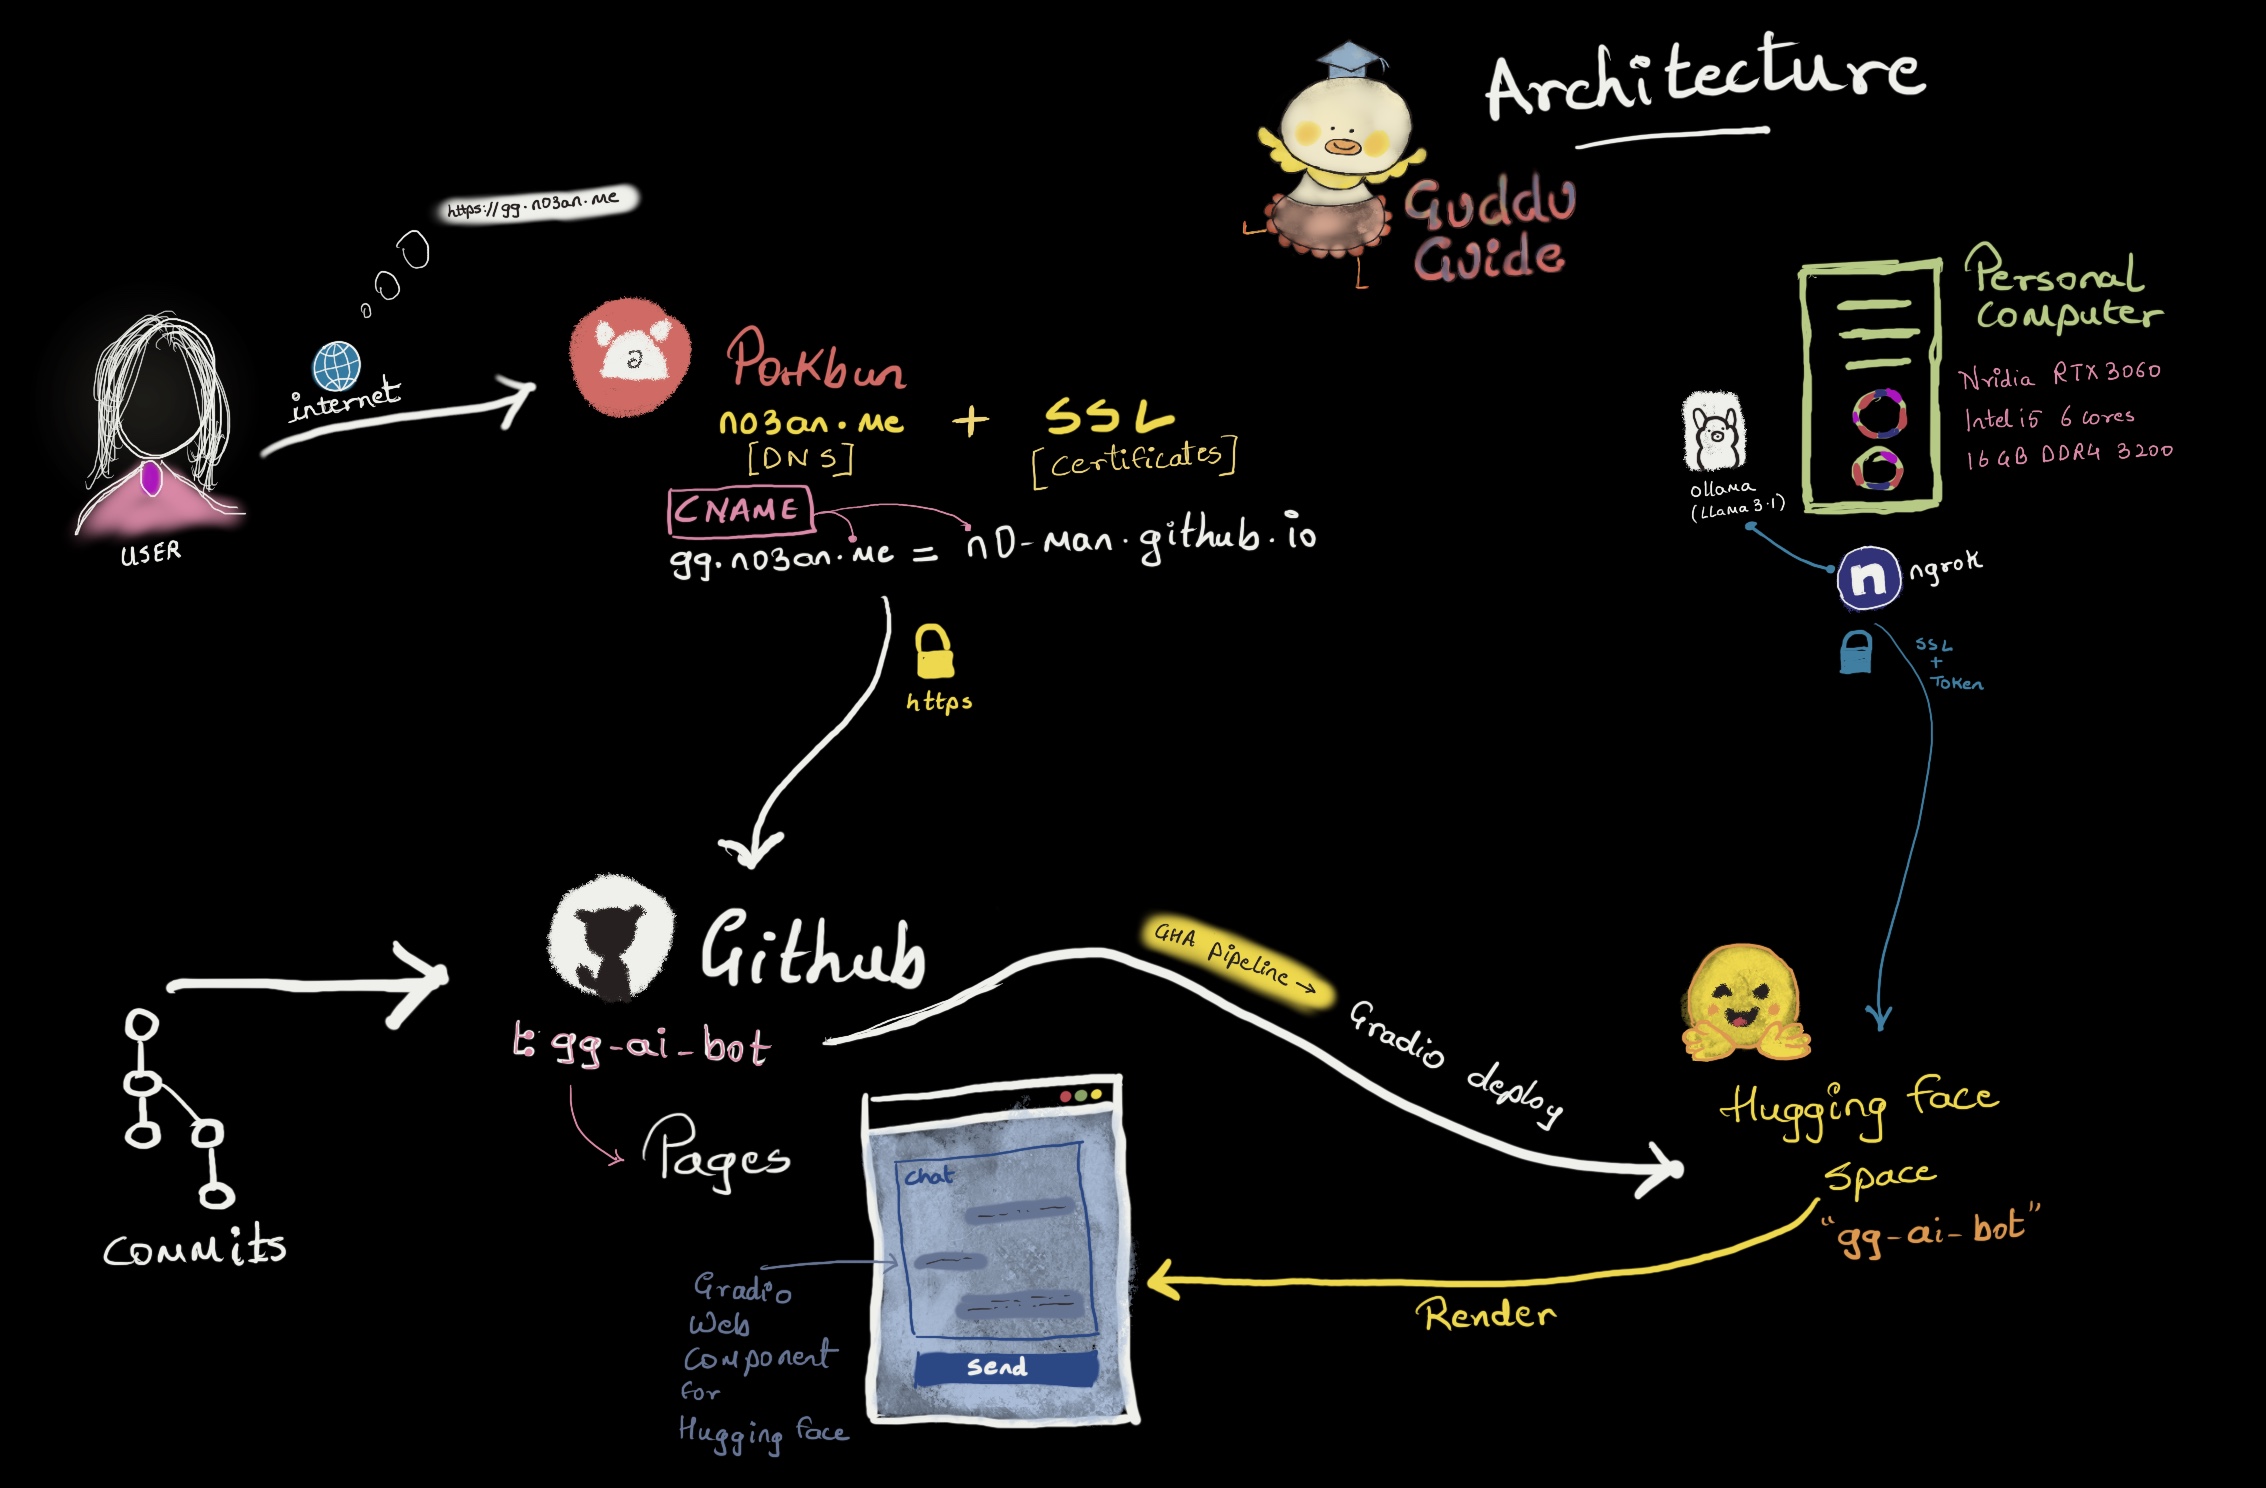 Architecture
Guddu
Guide
https://gg.no3an.me
internet
USER
Porkbun
no3an.me + SSL
[DNS] [Certificates]
CNAME
gg.no3an.me = n0-man.github.io
https
Personal
Computer
Nvidia RTX 3060
Intel i5 6 cores
16 GB DDR4 3200
ollama
(LLama 3.1)
n ngrok
SSL
+
Token
Github
gg-ai-bot
Pages
commits
GHA pipeline →
Gradio deploy
Hugging face
Space
"gg-ai-bot"
Render
chat
send
Gradio
Web
Component
for
Hugging face